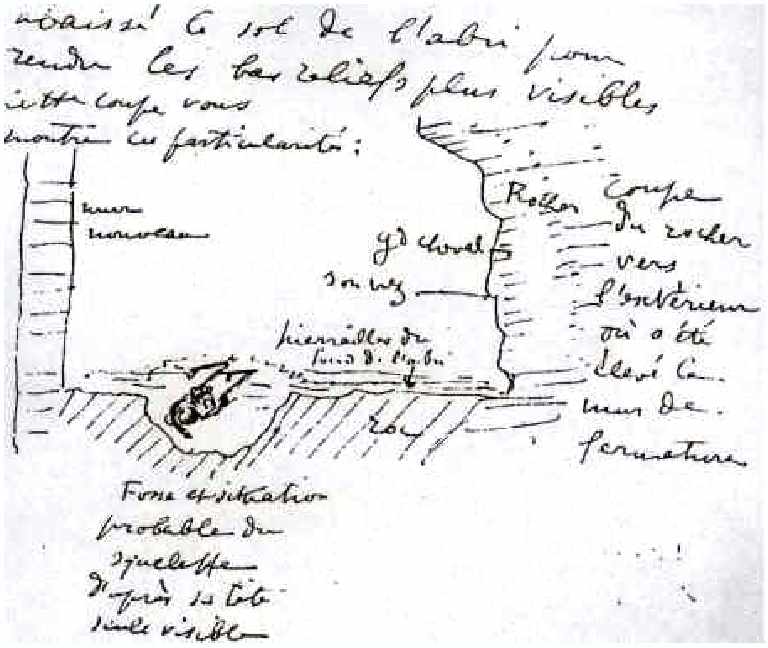 abaissé le sol de l'abri pour
rendre les bas reliefs plus visibles
cette coupe vous
montre ces particularités :
mur
nouveau
gd cheval
son nez
Rocher
coupe
du rocher
vers
l'extérieur
où a été
élevé le
mur de
fermeture
pierrailles du
fond de l'abri
roc
Fosse et situation
probable du
squelette
d'après sa tête
seule visible